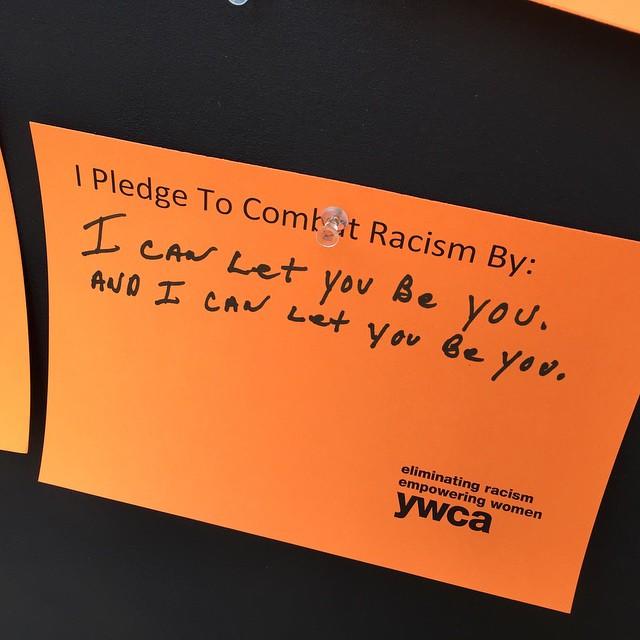 I Pledge To Combat Racism By:
I CAN Let YOU Be YOU.
AND I CAN Let YOU Be YOU.
eliminating racism
empowering women
ywca